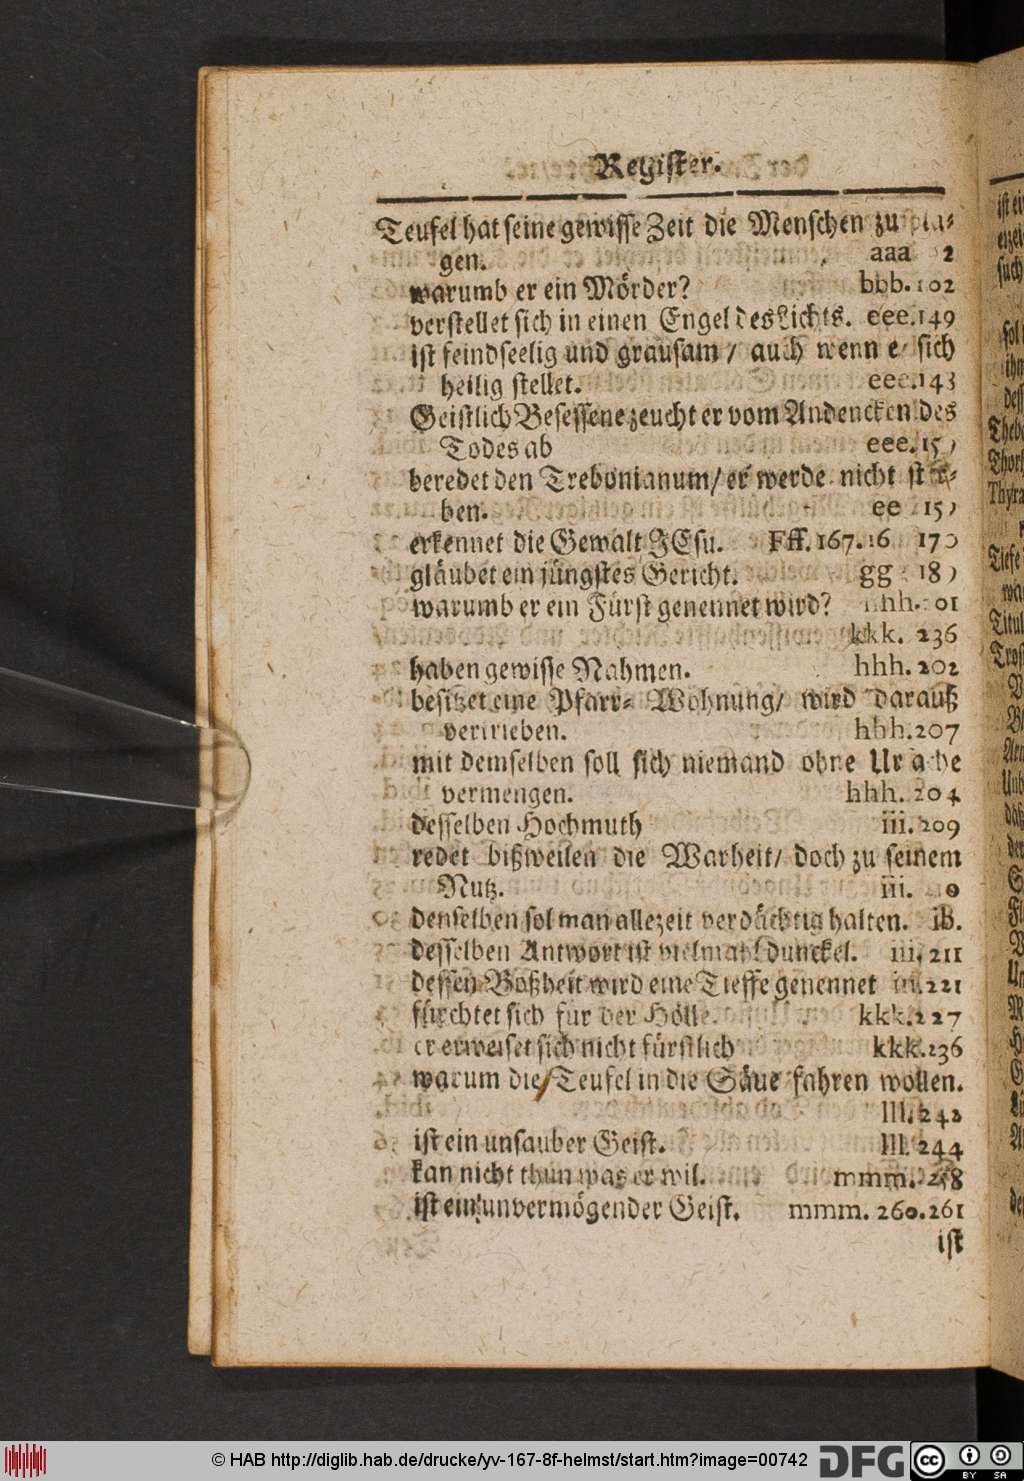 Register.
Teufel hat seine gewisse Zeit die Menschen zu pla-
gen. aaa 2
warumb er ein Mörder? bbb. 102
verstellet sich in einen Engel des Lichts. eee. 149
ist feindseelig und grausam / auch wenn er sich
heilig stellet. eee. 143
Geistlich Besessene zeucht er vom Andencken des
Todes ab eee.
beredet den Trebonianum / er werde nicht ster-
ben. ee
erkennet die Gewalt JEsu. Fff. 167. 170
gläubet ein jüngstes Gericht. gg
warumb er ein Fürst genennet wird? hhh.
kkk. 236
haben gewisse Nahmen. hhh. 202
besitzet eine Pfarr- Wohnung / wird darauß
vertrieben. hhh. 207
mit demselben soll sich niemand ohne Ursache
vermengen. hhh. 204
desselben Hochmuth iii. 209
redet bißweilen die Warheit / doch zu seinem
Nutz. iii.
denselben sol man allezeit verdächtig halten. ib.
desselben Antwort ist vielmahl dunckel. iii. 211
dessen Boßheit wird eine Tieffe genennet iii. 221
fürchtet sich für der Hölle. kkk. 227
er erweiset sich nicht fürstlich kkk. 236
warum die / Teufel in die Säue fahren wollen.
lll. 242
ist ein unsauber Geist. lll. 244
kan nicht thun was er wil. mmm. 258
ist ein unvermögender Geist. mmm. 260. 261
ist
ist ei
such
Theb
Thor
Thyra
Tiefe
Titul
Tros
© HAB http://diglib.hab.de/drucke/yv-167-8f-helmst/start.htm?image=00742
DFG
cc BY SA